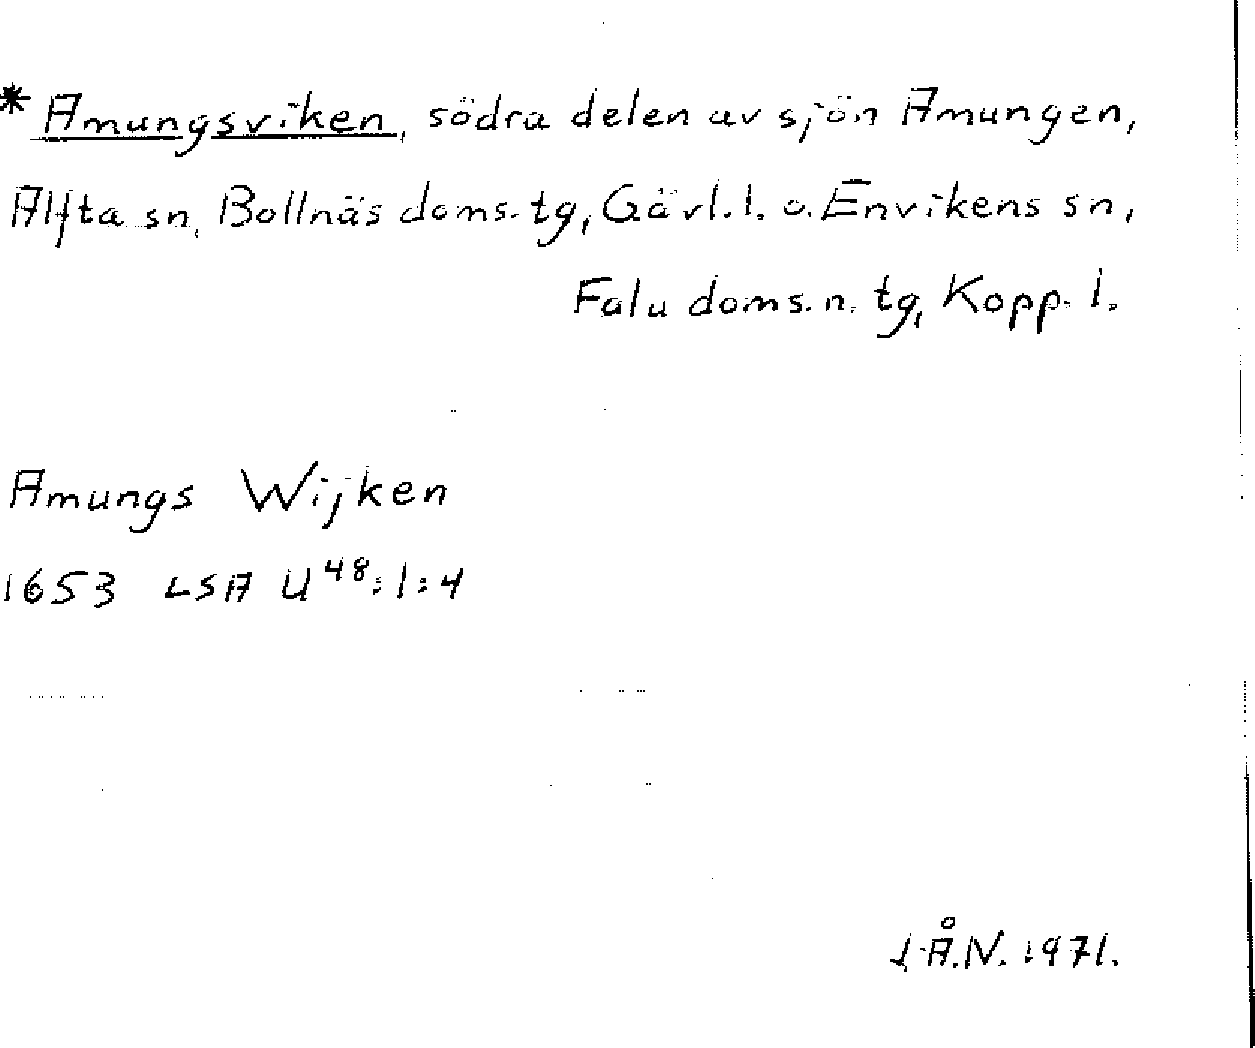 * Amungsviken, södra delen av sjön Amungen,
Alfta sn, Bollnäs doms. tg, Gävl. l. o. Envikens sn,
Falu doms. n. tg, Kopp. l.
Amungs Wijken
1653 LSA U⁴⁸:1:4
I.Å.N. 1971.